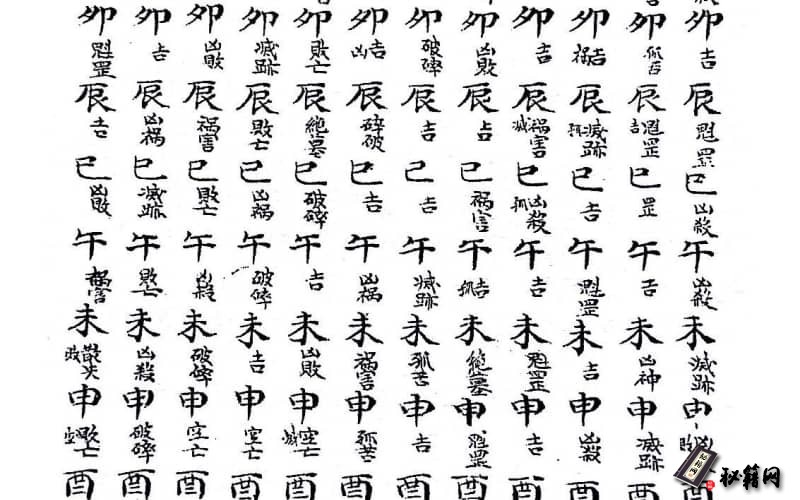 卯 卯 卯 卯 卯 卯 卯 卯 卯 卯 卯 卯
魁罡 吉 凶敗 滅跡 敗亡 凶吉 破碎 凶敗 吉 祸吉 孤吉 吉
辰 辰 辰 辰 辰 辰 辰 辰 辰 辰 辰 辰
吉 凶祸 祸害 敗亡 絶墓 碎破 吉 吉 滅祸害 孤滅跡 吉魁罡 魁罡
巳 巳 巳 巳 巳 巳 巳 巳 巳 巳 巳 巳
凶敗 滅跡 敗亡 凶祸 破碎 吉 吉 祸害 孤凶殺 吉 罡 凶殺
午 午 午 午 午 午 午 午 午 午 午 午
祸害 敗亡 凶殺 破碎 吉 凶祸 滅跡 孤吉 吉 魁罡 吉 凶殺
未 未 未 未 未 未 未 未 未 未 未 未
凶殺 破碎 吉 凶敗 祸害 孤苦 絶墓 魁罡 吉 凶神 滅跡
申 申 申 申 申 申 申 申 申 申 申 申
空敗亡 破碎 空亡 空亡 滅空亡 孤苦 吉 魁罡 吉 凶殺 滅跡 凶
酉 酉 酉 酉 酉 酉 酉 酉 酉 酉 酉
秘籍网